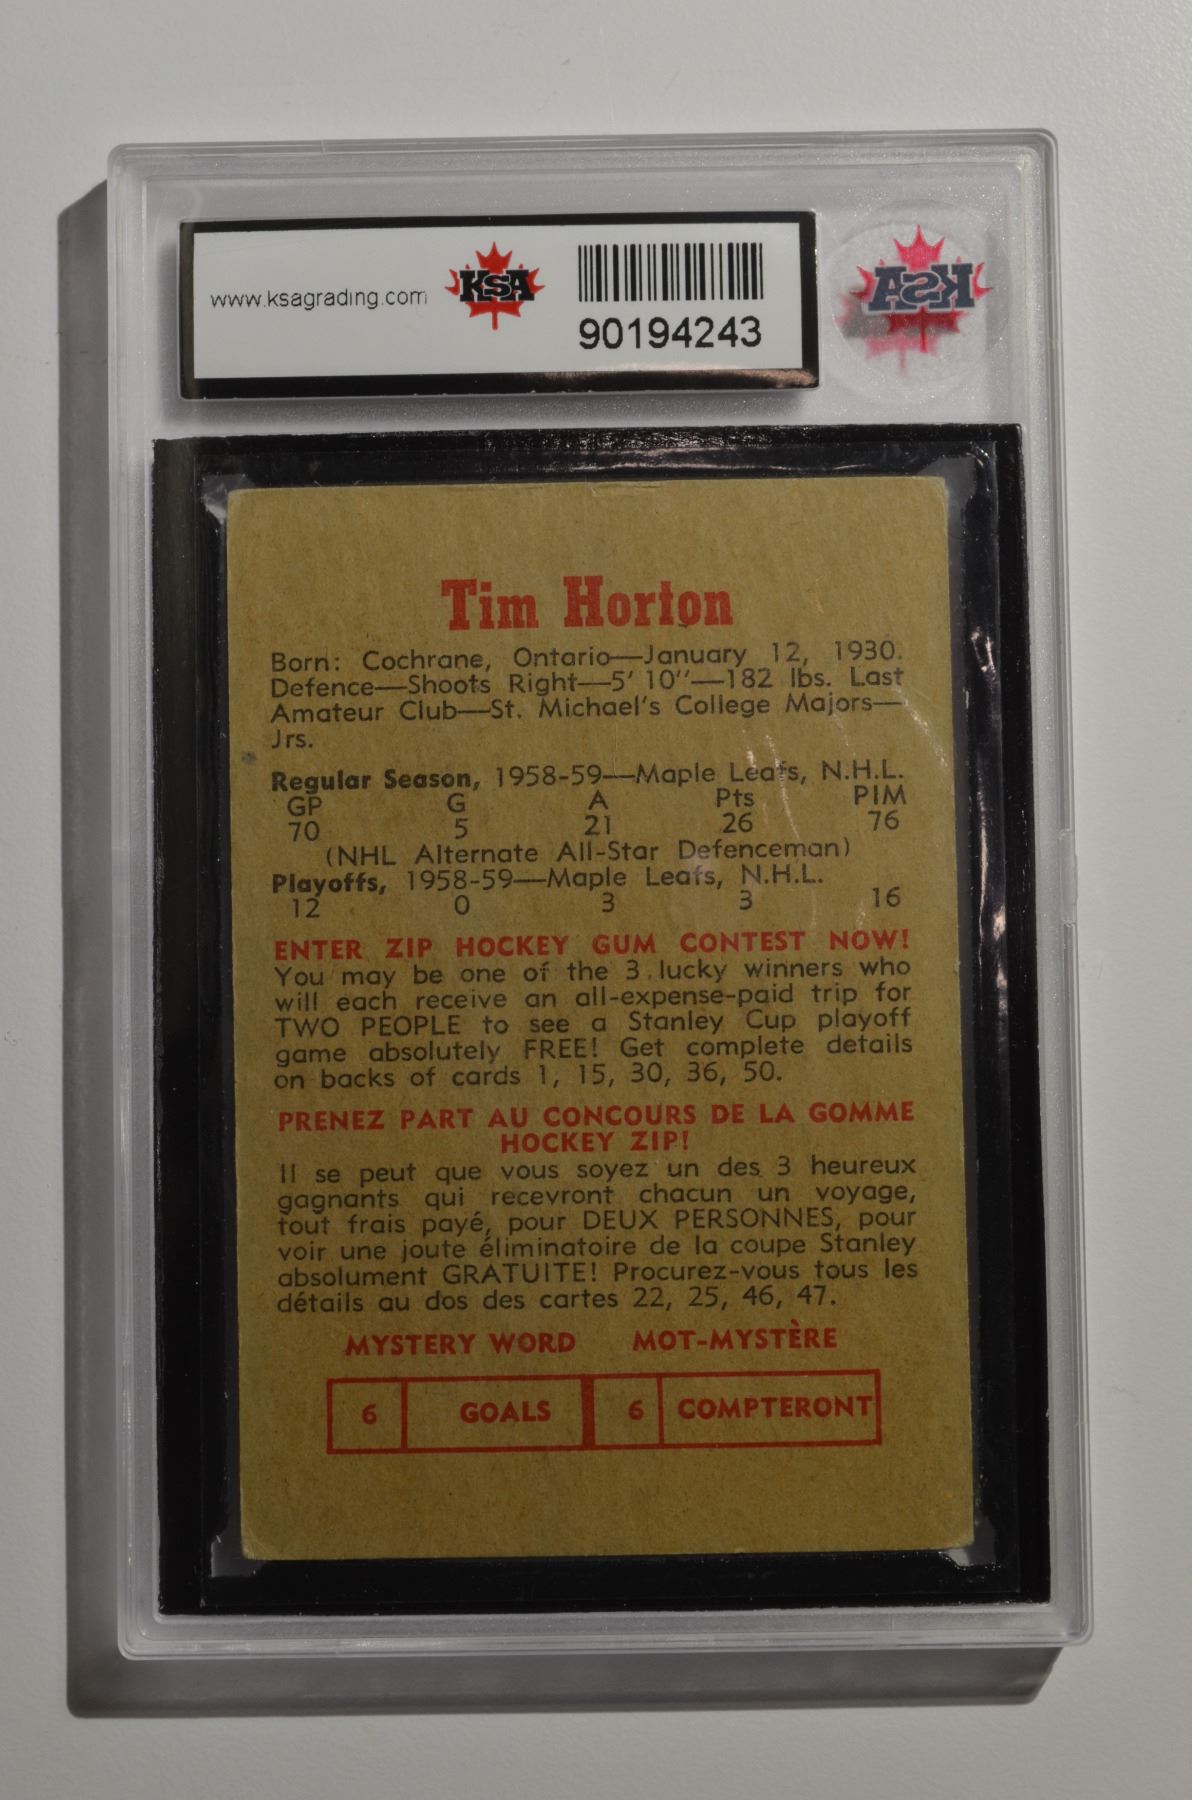 www.ksagrading.com
KSA
90194243
KSA
Tim Horton
Born: Cochrane, Ontario—January 12, 1930.
Defence—Shoots Right—5' 10''—182 lbs. Last
Amateur Club—St. Michael's College Majors—
Jrs.
Regular Season, 1958-59—Maple Leafs, N.H.L.
GP G A Pts PIM
70 5 21 26 76
(NHL Alternate All-Star Defenceman)
Playoffs, 1958-59—Maple Leafs, N.H.L.
12 0 3 3 16
ENTER ZIP HOCKEY GUM CONTEST NOW!
You may be one of the 3 lucky winners who
will each receive an all-expense-paid trip for
TWO PEOPLE to see a Stanley Cup playoff
game absolutely FREE! Get complete details
on backs of cards 1, 15, 30, 36, 50.
PRENEZ PART AU CONCOURS DE LA GOMME
HOCKEY ZIP!
Il se peut que vous soyez un des 3 heureux
gagnants qui recevront chacun un voyage,
tout frais payé, pour DEUX PERSONNES, pour
voir une joute éliminatoire de la coupe Stanley
absolument GRATUITE! Procurez-vous tous les
détails au dos des cartes 22, 25, 46, 47.
MYSTERY WORD MOT-MYSTÈRE
6 GOALS 6 COMPTERONT